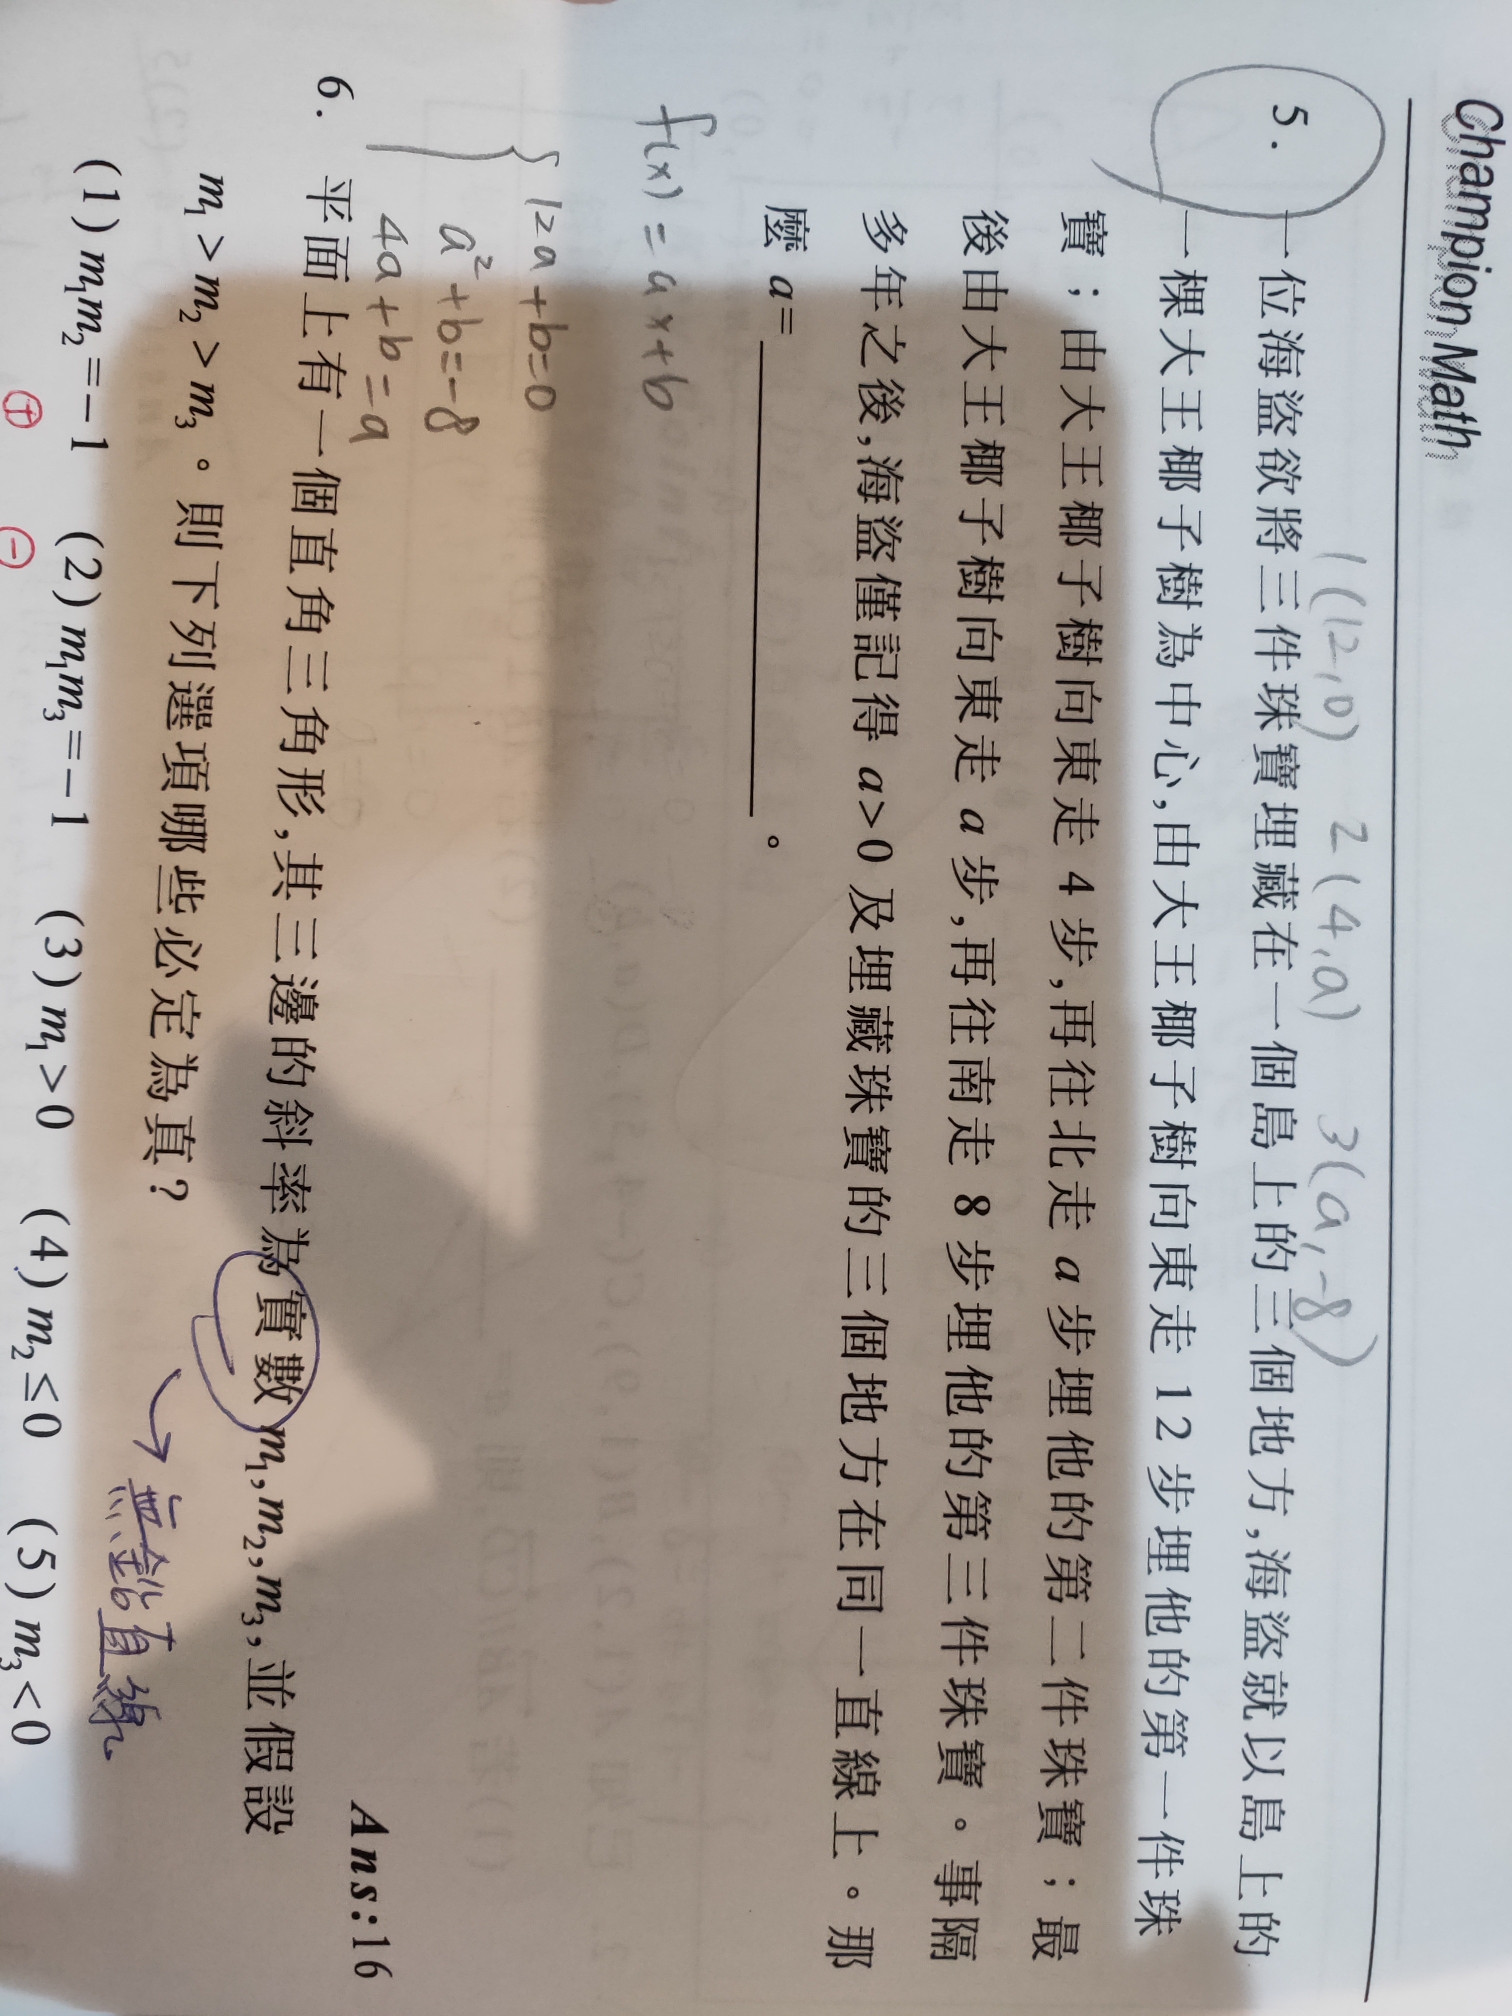 Champion Math
1(12,0) 2(4,a) 3(a,-8)
5. 一位海盜欲將三件珠寶埋藏在一個島上的三個地方,海盜就以島上的
一棵大王椰子樹為中心,由大王椰子樹向東走 12 步埋他的第一件珠
寶；由大王椰子樹向東走 4 步,再往北走 a 步埋他的第二件珠寶；最
後由大王椰子樹向東走 a 步,再往南走 8 步埋他的第三件珠寶。事隔
多年之後,海盜僅記得 a>0 及埋藏珠寶的三個地方在同一直線上。那
麼 a= ________ 。
f(x)=ax+b
12a+b=0
a²+b=-8
4a+b=a
Ans:16
6. 平面上有一個直角三角形,其三邊的斜率為實數 m₁,m₂,m₃,並假設
m₁>m₂>m₃。則下列選項哪些必定為真？
→ 無鉛直線
(1) m₁m₂=-1 (2) m₁m₃=-1 (3) m₁>0 (4) m₂≤0 (5) m₃<0
⊕ ⊖